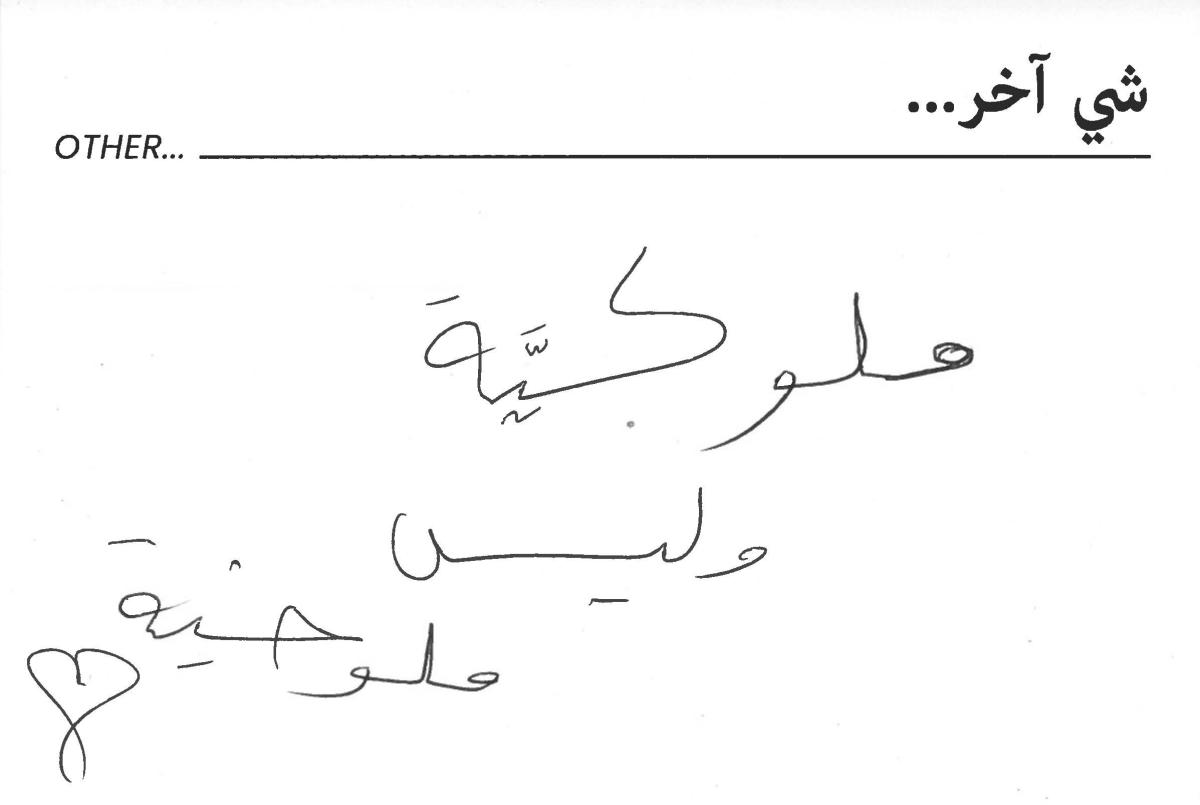 شي آخر...
OTHER...
ملوكيَّة
وليس
ملوخية